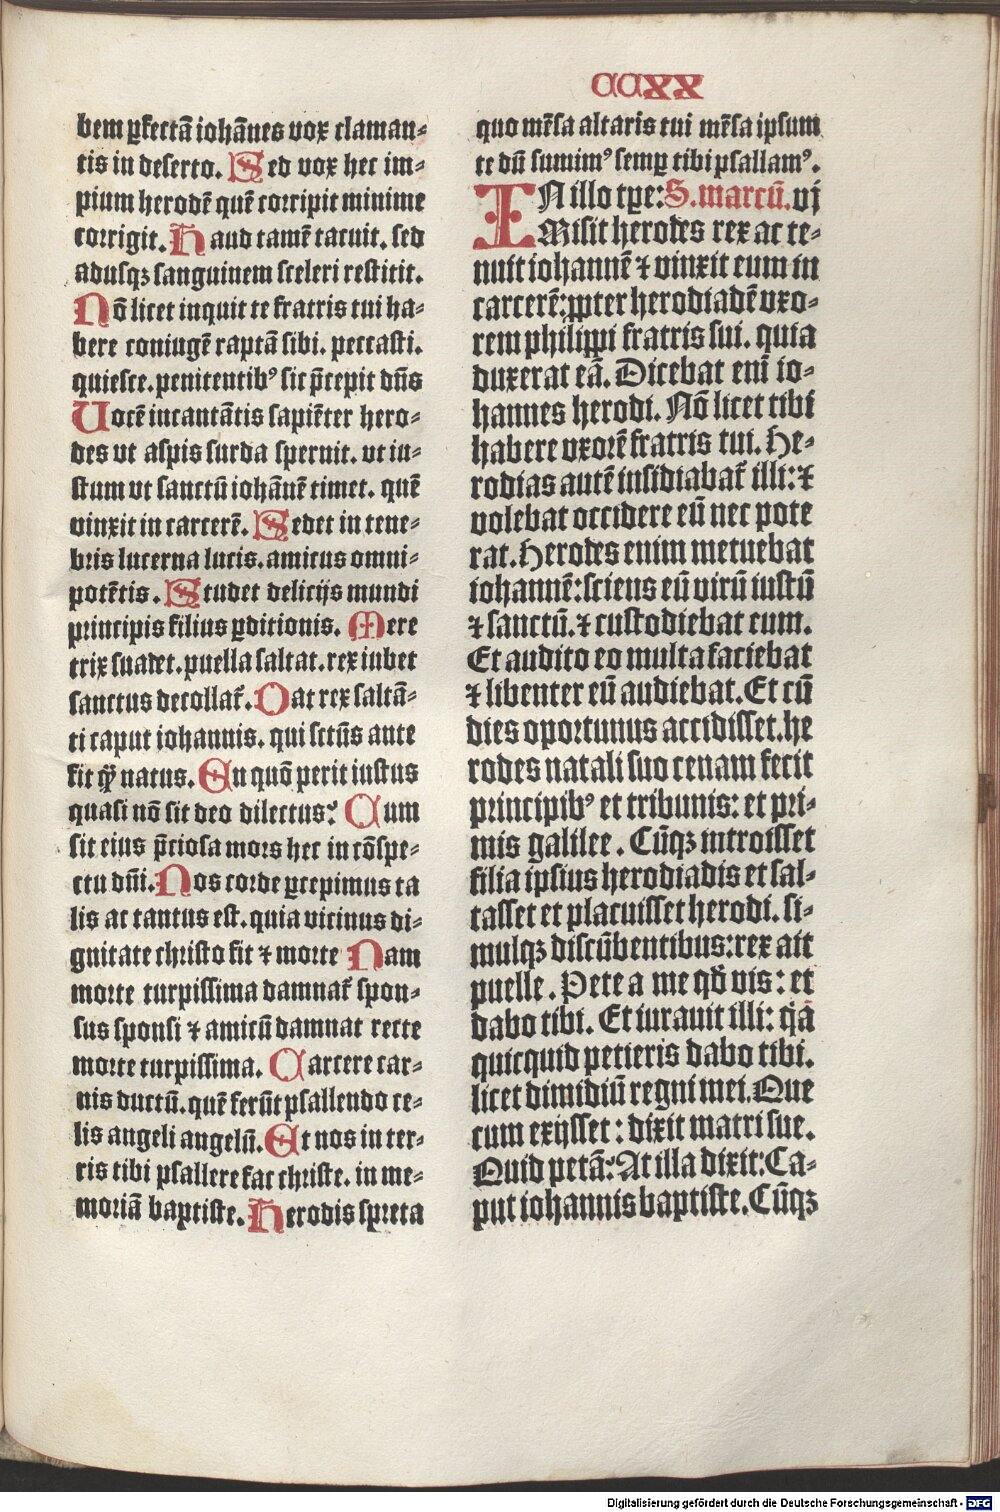 CCXX
bem ꝑfectā iohānes vox claman⸗
tis in deserto. Sed vox hec im⸗
pium herodē quē corripit minime
corrigit. Haud tamē tacuit. sed
adusqꝫ sanguinem sceleri restitit.
Nō licet inquit te fratris tui ha⸗
bere coniugē raptā sibi. peccasti.
quiesce. penitentibꝰ sic p̄cepit dn̄s
Vocē incantātis sapiēter hero⸗
des vt aspis surda spernit. vt iu⸗
stum vt sanctū iohānē timet. quē
vinxit in carcerē. Sedet in tene⸗
bris lucerna lucis. amicus omni⸗
potētis. Studet delicijs mundi
principis filius ꝑditionis. Mere
trix suadet. puella saltat. rex iubet
sanctus decollat᷑. Dat rex saltā⸗
ti caput iohannis. qui sctūs ante
fit qꝫ natus. En quō perit iustus
quasi nō sit deo dilectus? Cum
sit eius p̄ciosa mors hec in cōspe⸗
ctu dn̄i. Nos corde ꝑcepimus ta
lis ac tantus est. quia vicinus di⸗
gnitate christo fit ⁊ morte Nam
morte turpissima damnat᷑ spon⸗
sus sponsi ⁊ amicū damnat recte
morte turpissima. Carcere car⸗
nis ductū. quē ferūt psallendo ce⸗
lis angeli angelū. Et nos in ter⸗
ris tibi psallere fac christe. in me⸗
moriā baptiste. Herodis spreta
quo mēsa altaris tui mēsa ipsum
te dū sumimꝰ semꝑ tibi psallamꝰ.
IN illo tꝑe: S. marcū. vj
Misit herodes rex ac te⸗
nuit iohannē ⁊ vinxit eum in
carcerē: ꝓpter herodiadē vxo⸗
rem philippi fratris sui. quia
duxerat eā. Dicebat eni̅ io⸗
hannes herodi. Nō licet tibi
habere vxorē fratris tui. He⸗
rodias autē insidiabat᷑ illi: ⁊
volebat occidere eū nec pote
rat. Herodes enim metuebat
iohannē: sciens eū virū iustū
⁊ sanctū. ⁊ custodiebat eum.
Et audito eo multa faciebat
⁊ libenter eū audiebat. Et cū
dies oportunus accidisset. he
rodes natali suo cenam fecit
principibꝰ et tribunis: et pri⸗
mis galilee. Cūqꝫ introisset
filia ipsius herodiadis et sal⸗
tasset et placuisset herodi. si⸗
mulqꝫ discūbentibus: rex ait
puelle. Pete a me qd̄ vis: et
dabo tibi. Et iurauit illi: q̄a
quicquid petieris dabo tibi.
licet dimidiū regni mei. Que
cum exijsset: dixit matri sue.
Quid petā? At illa dixit: Ca⸗
put iohannis baptiste. Cūqꝫ
Digitalisierung gefördert durch die Deutsche Forschungsgemeinschaft - DFG